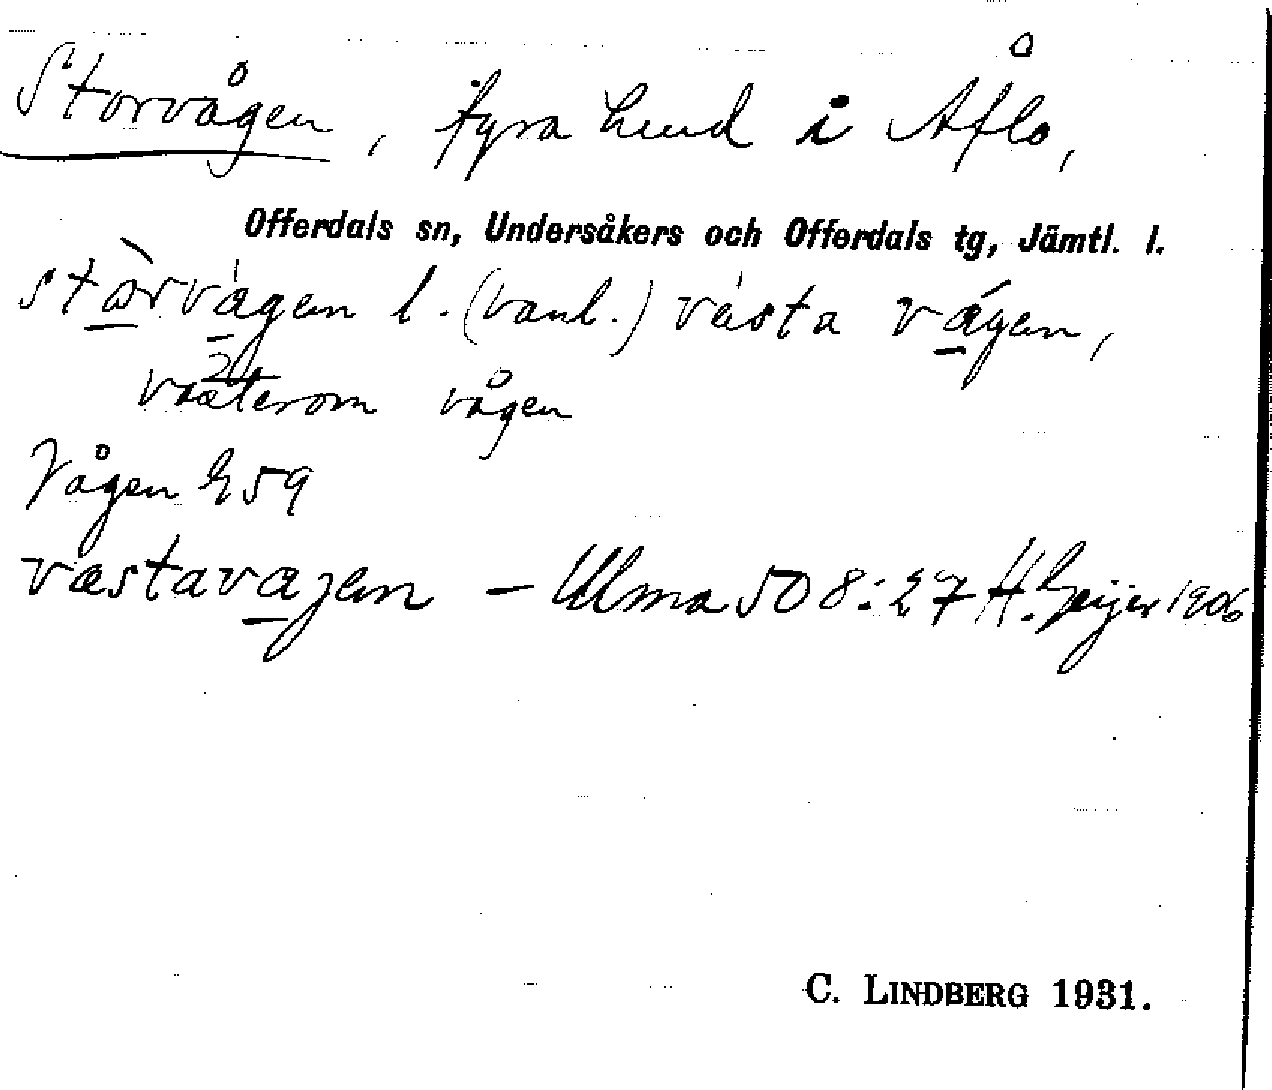 Storvågen, fyra hund i Åflo,
Offerdals sn, Undersåkers och Offerdals tg, Jämtl. l.
stòrvágen l. (vanl.) västa vágen,
västerom vågen
Vågen G59
væstavagen – Ulma 508:27 H. Geijer 1906
C. LINDBERG 1931.